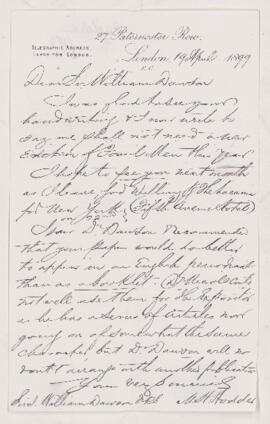 27 Paternoster Row.
TELEGRAPHIC ADDRESS,
LONDON.
London, 19 April 1899
E.C.
Dear Sir William Dawson
I was glad to see your
handwriting & I now write to
say we shall not need a new
Edition of Fossil Men this year
I hope to see you next month
as I leave for
for New York (Fifth Avenue Hotel)
on
Your Dr Dawson recommended
that your paper would do better
to appear in an English periodical
than as a booklet - Dr
not well use them for the Expositor
as he has a series of articles now
going on of somewhat the same
character but Dr Dawson will no
doubt arrange with another publication
Yours very sincerely
Sir William Dawson M H Hodder